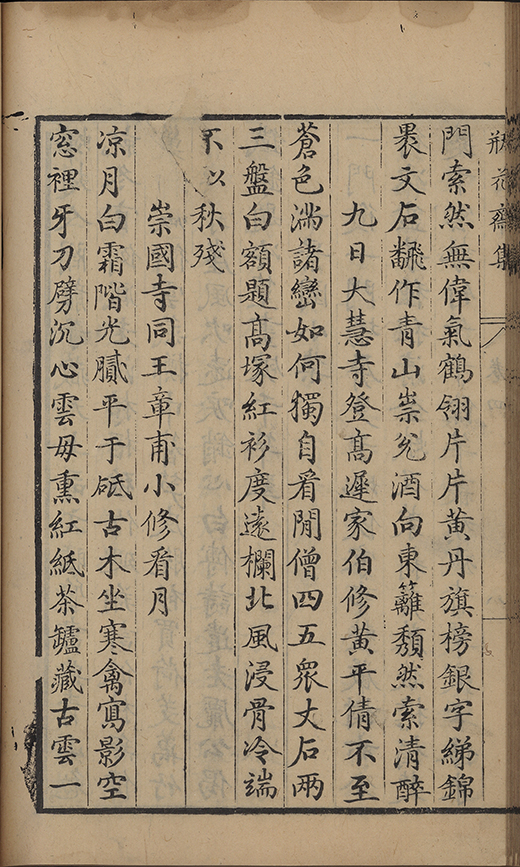 瓶花齋集
門索然無偉氣鶴翎片片黃丹旗榜銀字綈錦
褁文石飜作青山祟兊酒向東籬頽然索清醉
九日大慧寺登髙遲家伯修黃平倩不至
蒼色滿諸巒如何獨自看閒僧四五衆丈石兩
三盤白額題髙塚紅衫度遠欄北風浸骨冷端
不以秋殘
崇國寺同王章甫小修看月
凉月白霜階光膩平于砥古木坐寒禽寫影空
窓裡牙刀劈沉心雲毋熏紅紙茶鑪藏古雲一